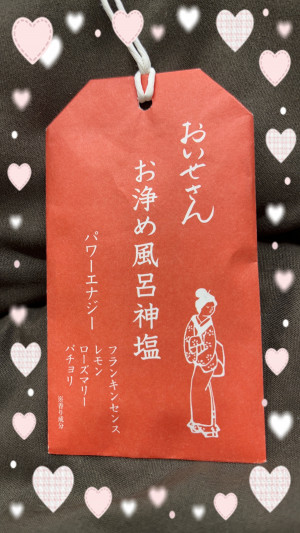 おいせさん
お浄め風呂神塩
パワーエナジー
フランキンセンス
レモン
ローズマリー
パチョリ
※香り成分